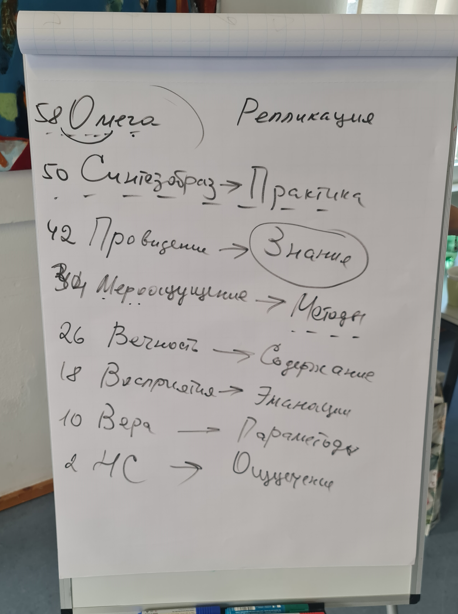 58 Омега Репликация
50 Синтезобраз → Практика
42 Провидение → Знание
34 Мероощущение → Методы
26 Вечность → Содержание
18 Восприятия → Эманации
10 Вера → Параметоды
2 НС → Ощущение